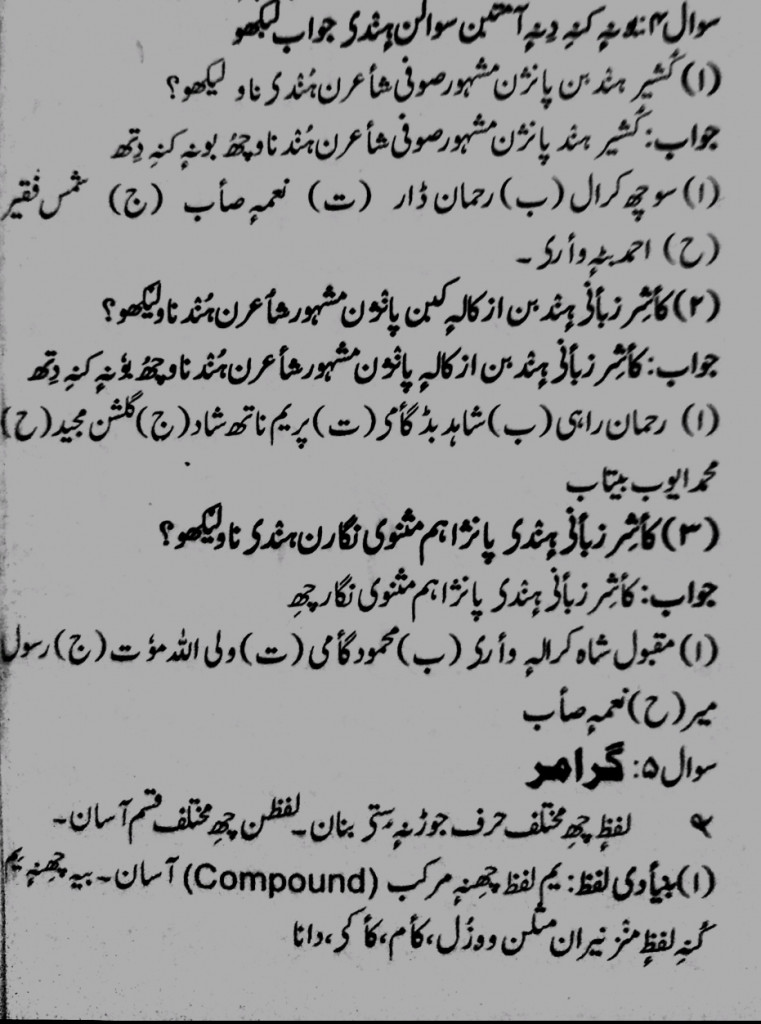 سوال ۴: بۄنہٕ کنہِ دِنہٕ آمتیٚن سوالن ہٕنٛدی جواب لیٚکھو
(۱) کٔشیٖر ہنٛدیٚن پانٛژن مشہور صوفی شٲعرن ہُنٛدی ناو لیٚکھو؟
جواب: کٔشیٖر ہنٛد پانٛژن مشہور صوفی شٲعرن ہُنٛد ناو چھُ بونہٕ کنہِ دِتھ
(۱) سوچھ کرال (ب) رحمان ڈار (ت) نعمہٕ صٲب (ج) شمس فقیر
(ح) احمد بٹہٕ وٲرۍ ۔
(۲) کٲشِر زبٲنۍ ہٕنٛدیٚن ازکالہٕ کیٚن پانٛژن مشہور شٲعرن ہُنٛد ناو لیٚکھو؟
جواب: کٲشِر زبٲنۍ ہٕنٛدیٚن ازکالہٕ پانٛژن مشہور شٲعرن ہُنٛد ناو چھُ بۄنہٕ کنہِ دِتھ
(۱) رحمان راہی (ب) شاہد بڈگٲمۍ (ت) پریم ناتھ شاد (ج) گلشن مجید (ح)
محمد ایوب بیتاب
(۳) کٲشِر زبٲنۍ ہٕنٛدۍ پانٛژ اہم مثنوی نگارن ہنٛدی ناو لیٚکھو؟
جواب: کٲشِر زبٲنۍ ہٕنٛدۍ پانٛژ اہم مثنوی نگار چھِ
(۱) مقبول شاہ کرالہٕ وٲرۍ (ب) محمود گٲمی (ت) ولی اللہ موٚت (ج) رسول
میر (ح) نعمہٕ صٲب
سوال ۵: گرامر
لفظٕ چھِ مختلف حرف جوڑنہٕ سٟتۍ بنان۔ لفظن چھِ مختلف قسم آسان۔
(۱) بنیٲدی لفظ: یم لفظ چھنہٕ مرکب (Compound) آسان۔ بیہ چھنہٕ یم
کُنہِ لفظٕ منٛز نیران مثلن ووزُل، کٲم، کٲکر، دانا